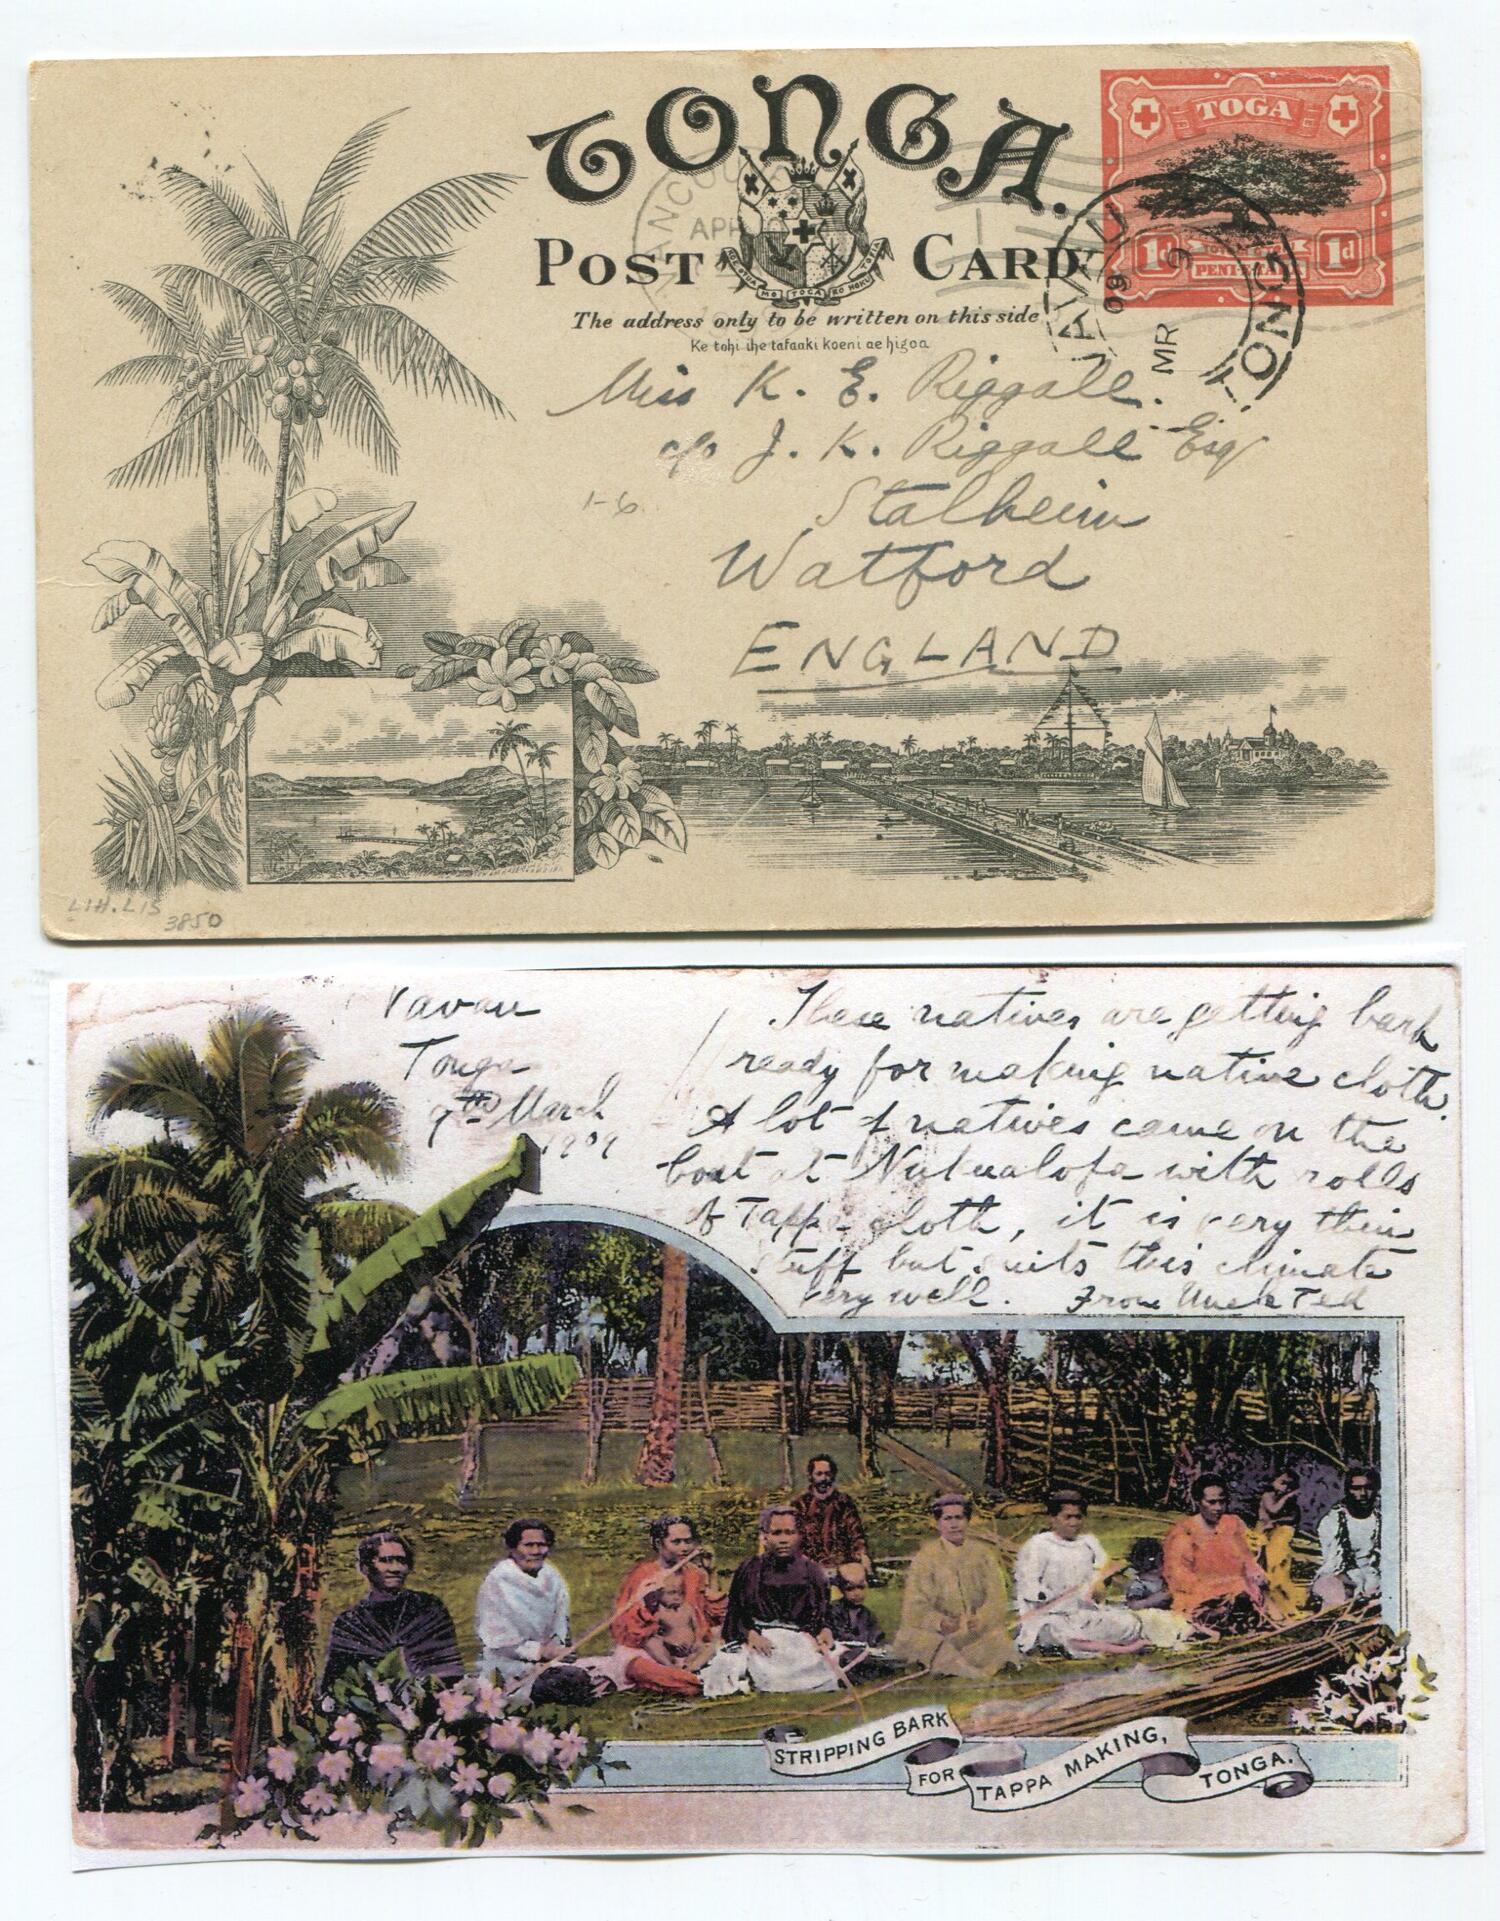 TONGA.
POST CARD
VANCOU
APR
TOGA
1d
1d
PENI-E-TAHA
VAVAU
09
MR 9
TONGA
KOE OTUA MO TOGA KO HOKU TOFIA
The address only to be written on this side
Ke tohi ihe tafaaki koeni ae higoa
Miss K. E. Riggall.
c/o J. K. Riggall Esq
1-6
Stalheim
Watford
ENGLAND
LIH.LIS
3850
Vavau
Tonga
9th March
1909
These natives are getting bark
ready for making native cloth.
A lot of natives came on the
boat at Nukualofa with rolls
of Tappa cloth, it is very thin
stuff but suits this climate
very well. From Uncle Ted
STRIPPING BARK
FOR
TAPPA MAKING,
TONGA.